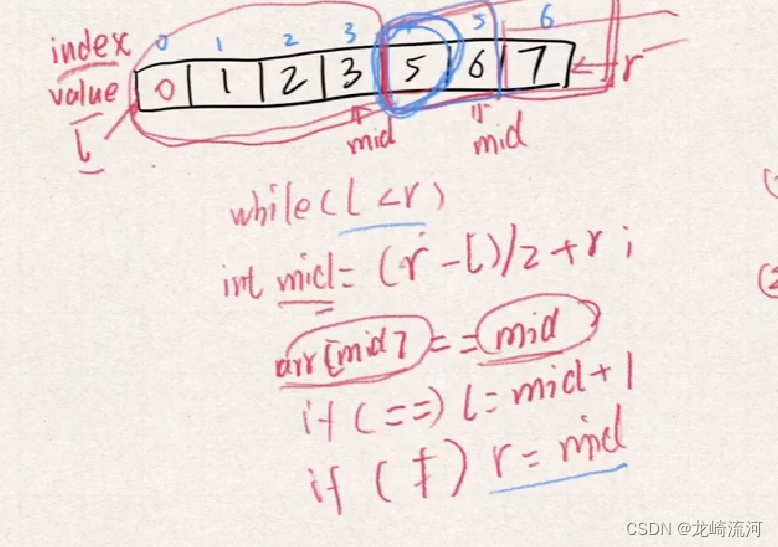 index 0 1 2 3 5 6
value 0 1 2 3 5 6 7
l r
mid mid
while(l<r)
int mid=(r-l)/2+r;
arr[mid]==mid
if(==)l=mid+1
if(≠)r=mid
CSDN @龙崎流河